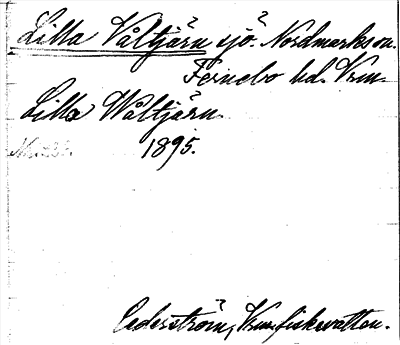 Lilla Våltjärn sjö. Nordmarks sn.
Fernebo hd. Vrm.
Lilla Wåltjärn.
1895.
Cederström, Vrm. fiskvatten.